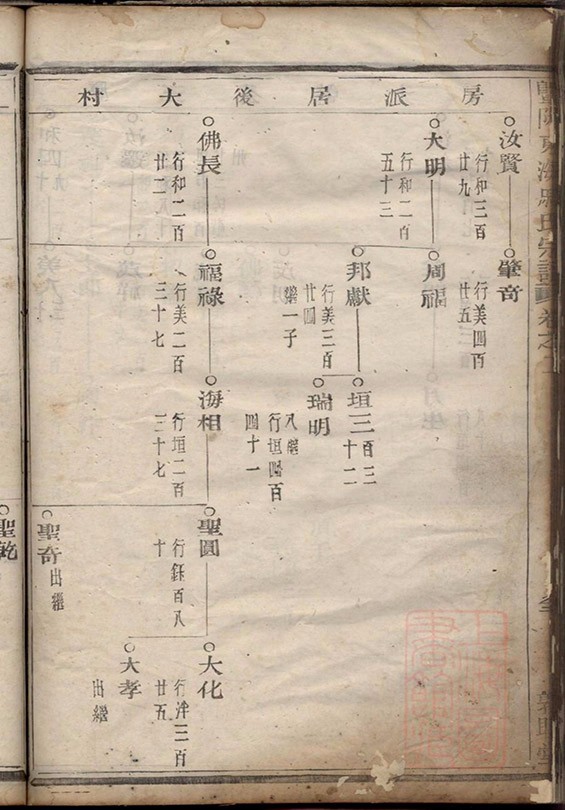 房派居後大村
汝賢
行和三百
廿九
肇奇
行美四百
廿五
大明
行和二百
五十三
周福
邦獻
行美三百
廿四
繼一子
垣三百三
十二
瑞明
入繼
行垣四百
四十一
佛長
行和二百
廿二
福祿
行美二百
三十七
海相
行垣二百
三十七
聖圓
行鈺百八
十
聖奇
出繼
大化
行洋三百
廿五
大孝
出繼
聖乾